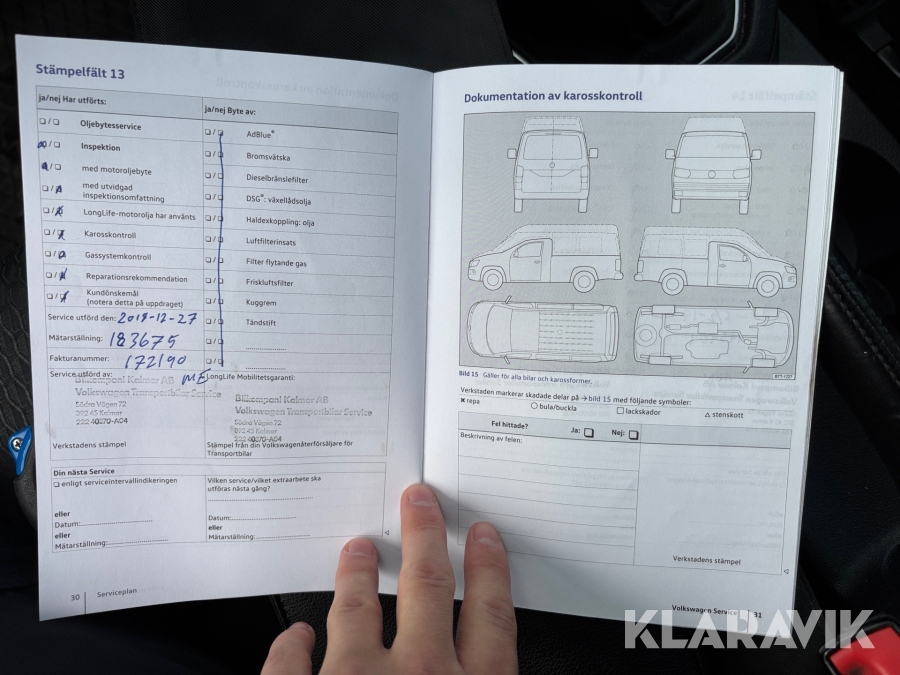 Stämpelfält 13
ja/nej Har utförts:
Oljebytesservice
Inspektion
med motoroljebyte
med utvidgad
inspektionsomfattning
LongLife-motorolja har använts
Karosskontroll
Gassystemkontroll
Reparationsrekommendation
Kundönskemål
(notera detta på uppdraget)
ja/nej Byte av:
AdBlue®
Bromsvätska
Dieselbränslefilter
DSG®: växellådsolja
Haldexkoppling: olja
Luftfilterinsats
Filter flytande gas
Friskluftsfilter
Kuggrem
Tändstift
Service utförd den: 2018-12-27
Mätarställning: 183675
Fakturanummer: 172190
Service utförd av:
Bilkompani Kalmar AB
Volkswagen Transportbilar Service
Södra Vägen 72
392 45 Kalmar
Verkstadens stämpel
LongLife Mobilitetsgaranti:
Bilkompani Kalmar AB
Volkswagen Transportbilar Service
Södra Vägen 72
392 45 Kalmar
Stämpel från din Volkswagenåterförsäljare för
Transportbilar
Din nästa Service
enligt serviceintervallindikeringen
eller
Datum:
eller
Mätarställning:
Vilken service/vilket extraarbete ska
utföras nästa gång?
Datum:
eller
Mätarställning:
30 Serviceplan
Dokumentation av karosskontroll
Bild 15 Gäller för alla bilar och karossformer.
Verkstaden markerar skadade delar på → bild 15 med följande symboler:
✖ repa ○ bula/buckla □ lackskador △ stenskott
Fel hittade? Ja: Nej:
Beskrivning av felen:
Verkstadens stämpel
Volkswagen Service 31
KLARAVIK